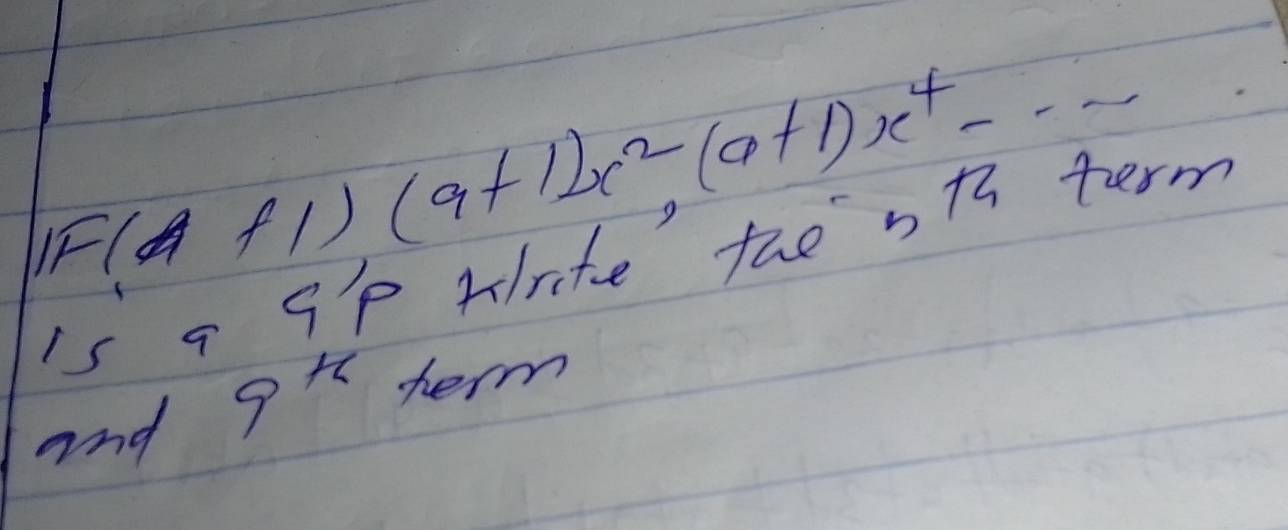 IF (a + 1) (a+1)x², (a+1)x⁴ - - - -
is a G'P Write the nth term
and 9th term